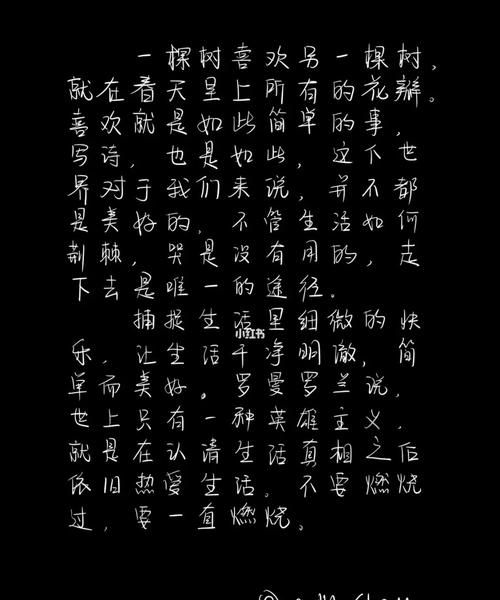 一棵树喜欢另一棵树，
就在看天呈上所有的花瓣。
喜欢就是如此简单的事，
写诗，也是如此，这下世
界对于我们来说，并不都
是美好的，不管生活如何
荆棘，哭是没有用的，走
下去是唯一的途径。
捕捉生活里细微的快
小红书
乐，让生活干净明澈，简
单而美好。罗曼罗兰说，
世上只有一种英雄主义，
就是在认清生活真相之后
依旧热爱生活。不要燃烧
过，要一直燃烧。